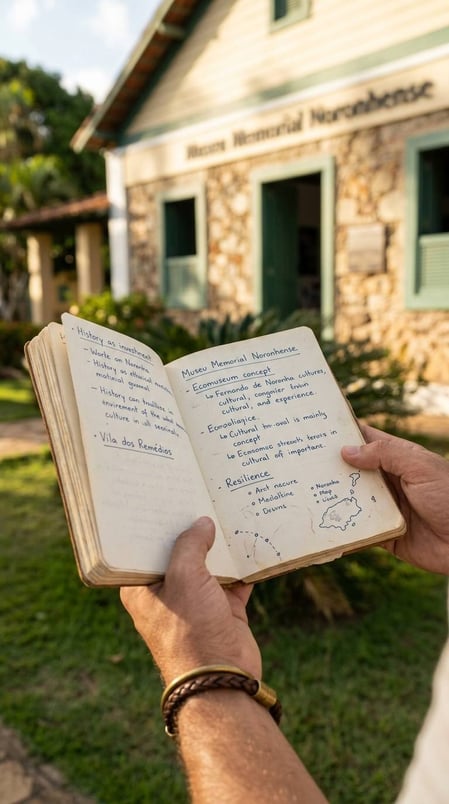 Museu Memorial Noronhense
• History as investment
- Work on Noronha
- History as ethical
material general
- History can
envirement of the
culture in all
• Vila dos Remédios
Museu Memorial Noronhense
Ecomuseum concept
↳ Fernando de Noronha cultures,
cultural, congnier
cultural, and experience.
Ecomologice.
↳ Cultural is mainly
concept
↳ Economic streets tenors in
cultural of importans.
• Resilience
• Arct nacure
• Medialkine
• Desuns
• Noronha
• Map